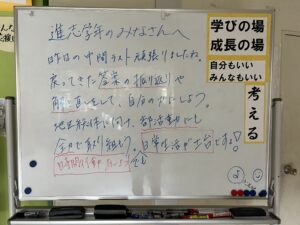 進志学年のみなさんへ
昨日の中間テスト頑張りましたね。
戻ってきた答案の振り返りや
直しをして、自分の力にしよう。
地区総体に向け、部活動にも
全力で取り組もう。日常生活が土台ですよ!
でも
学びの場
成長の場
自分もいい
みんなもいい
考える